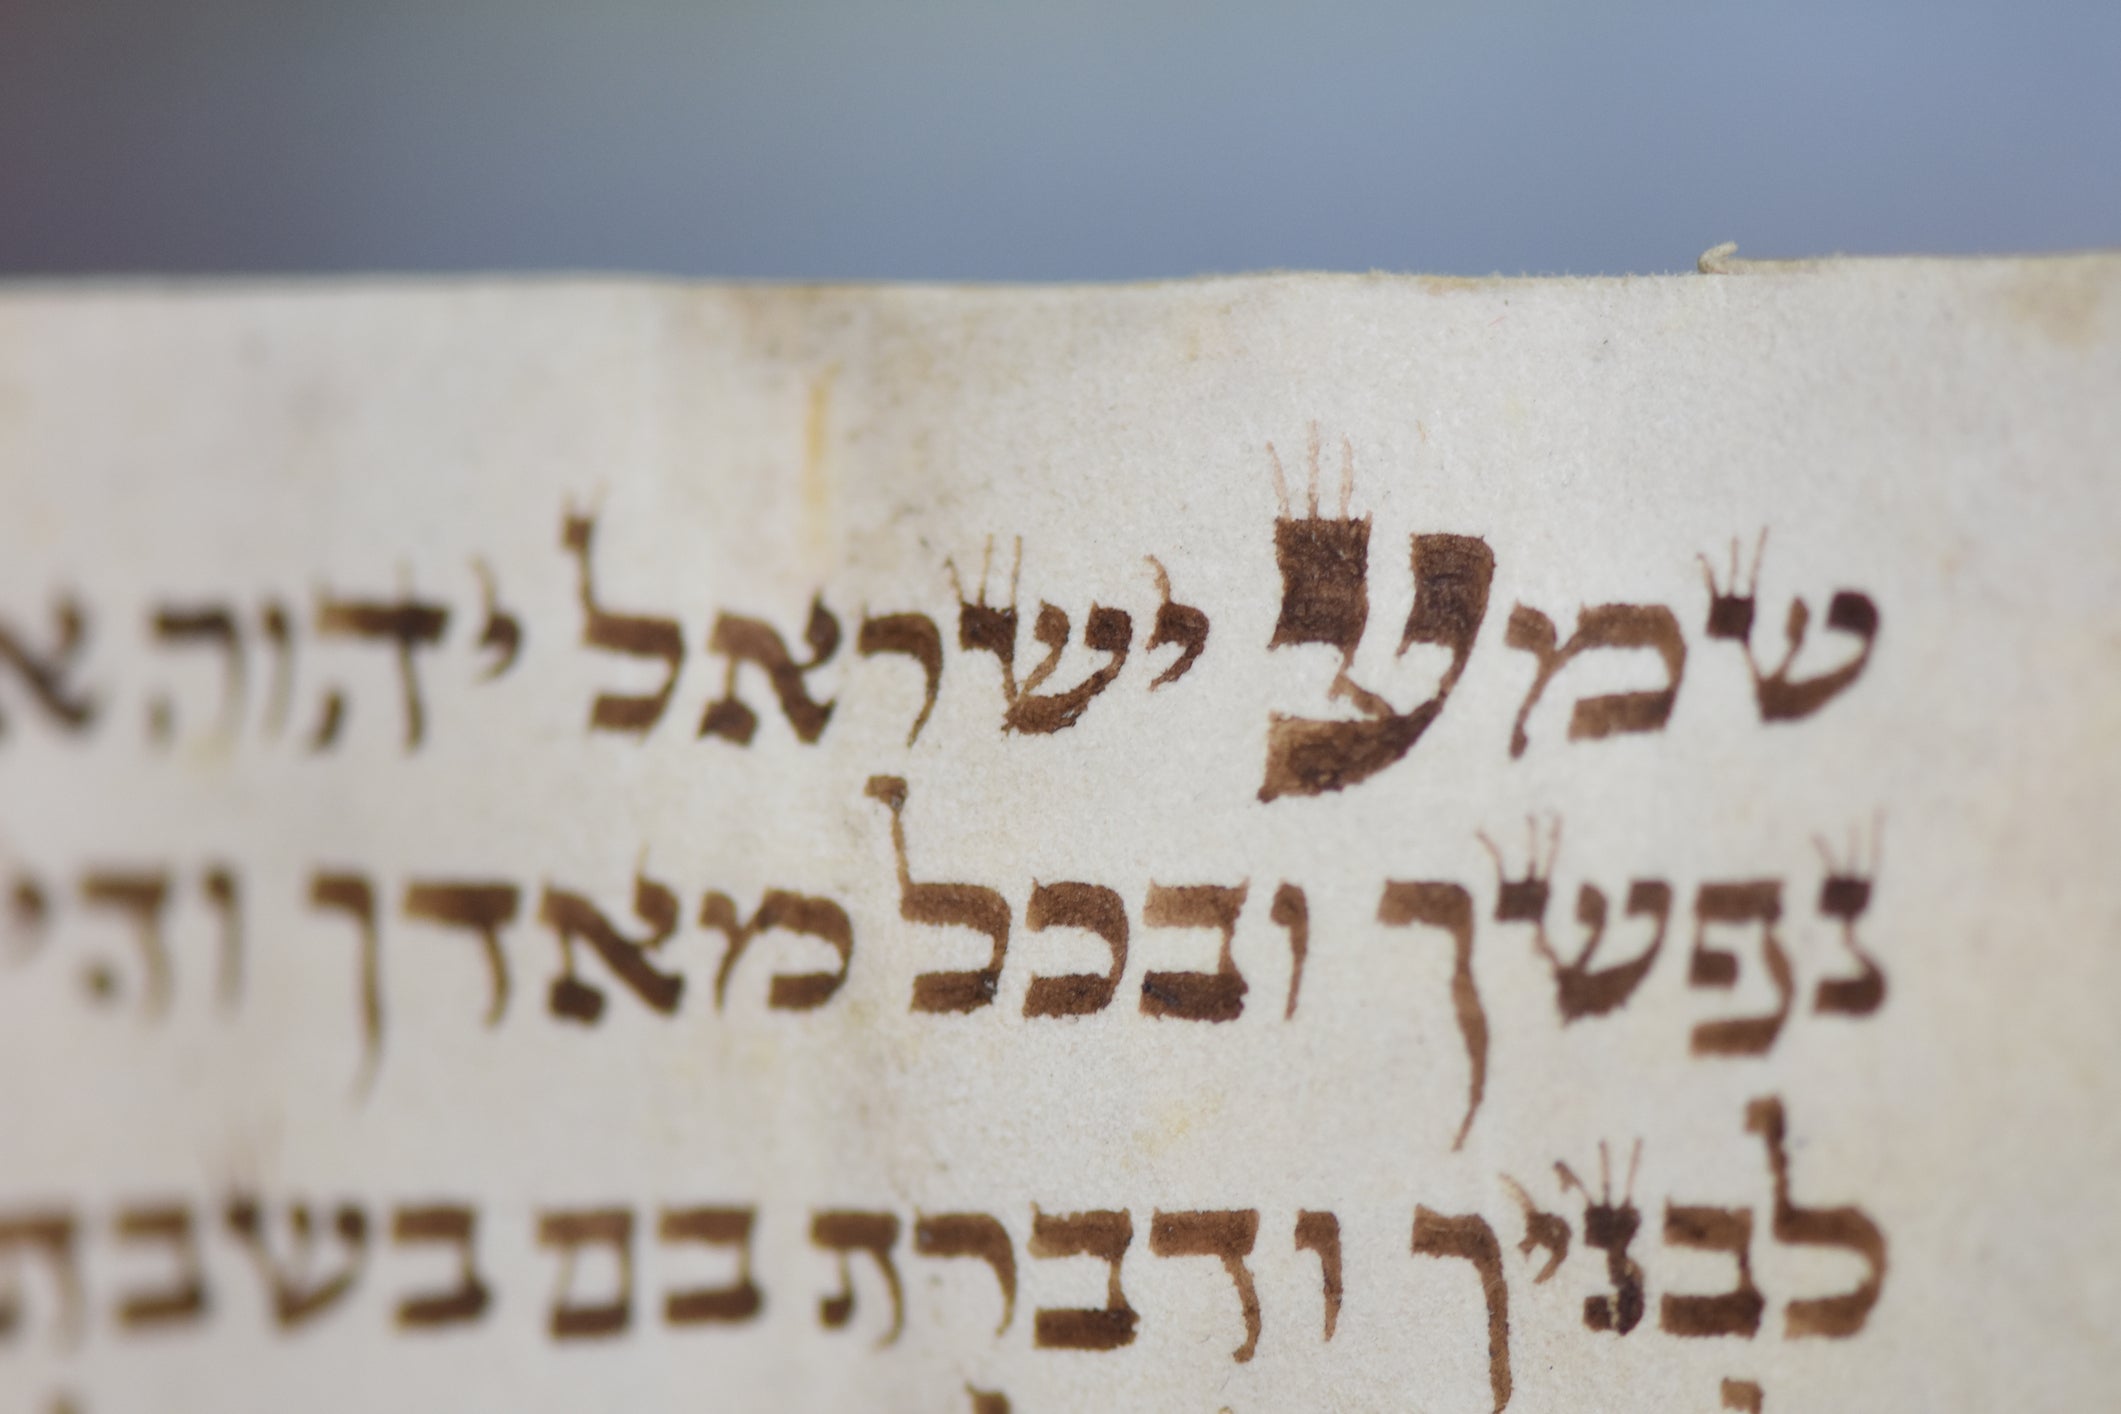 שמע ישראל יהוה
נפשך ובכל מאדך
לבניך ודברת בם